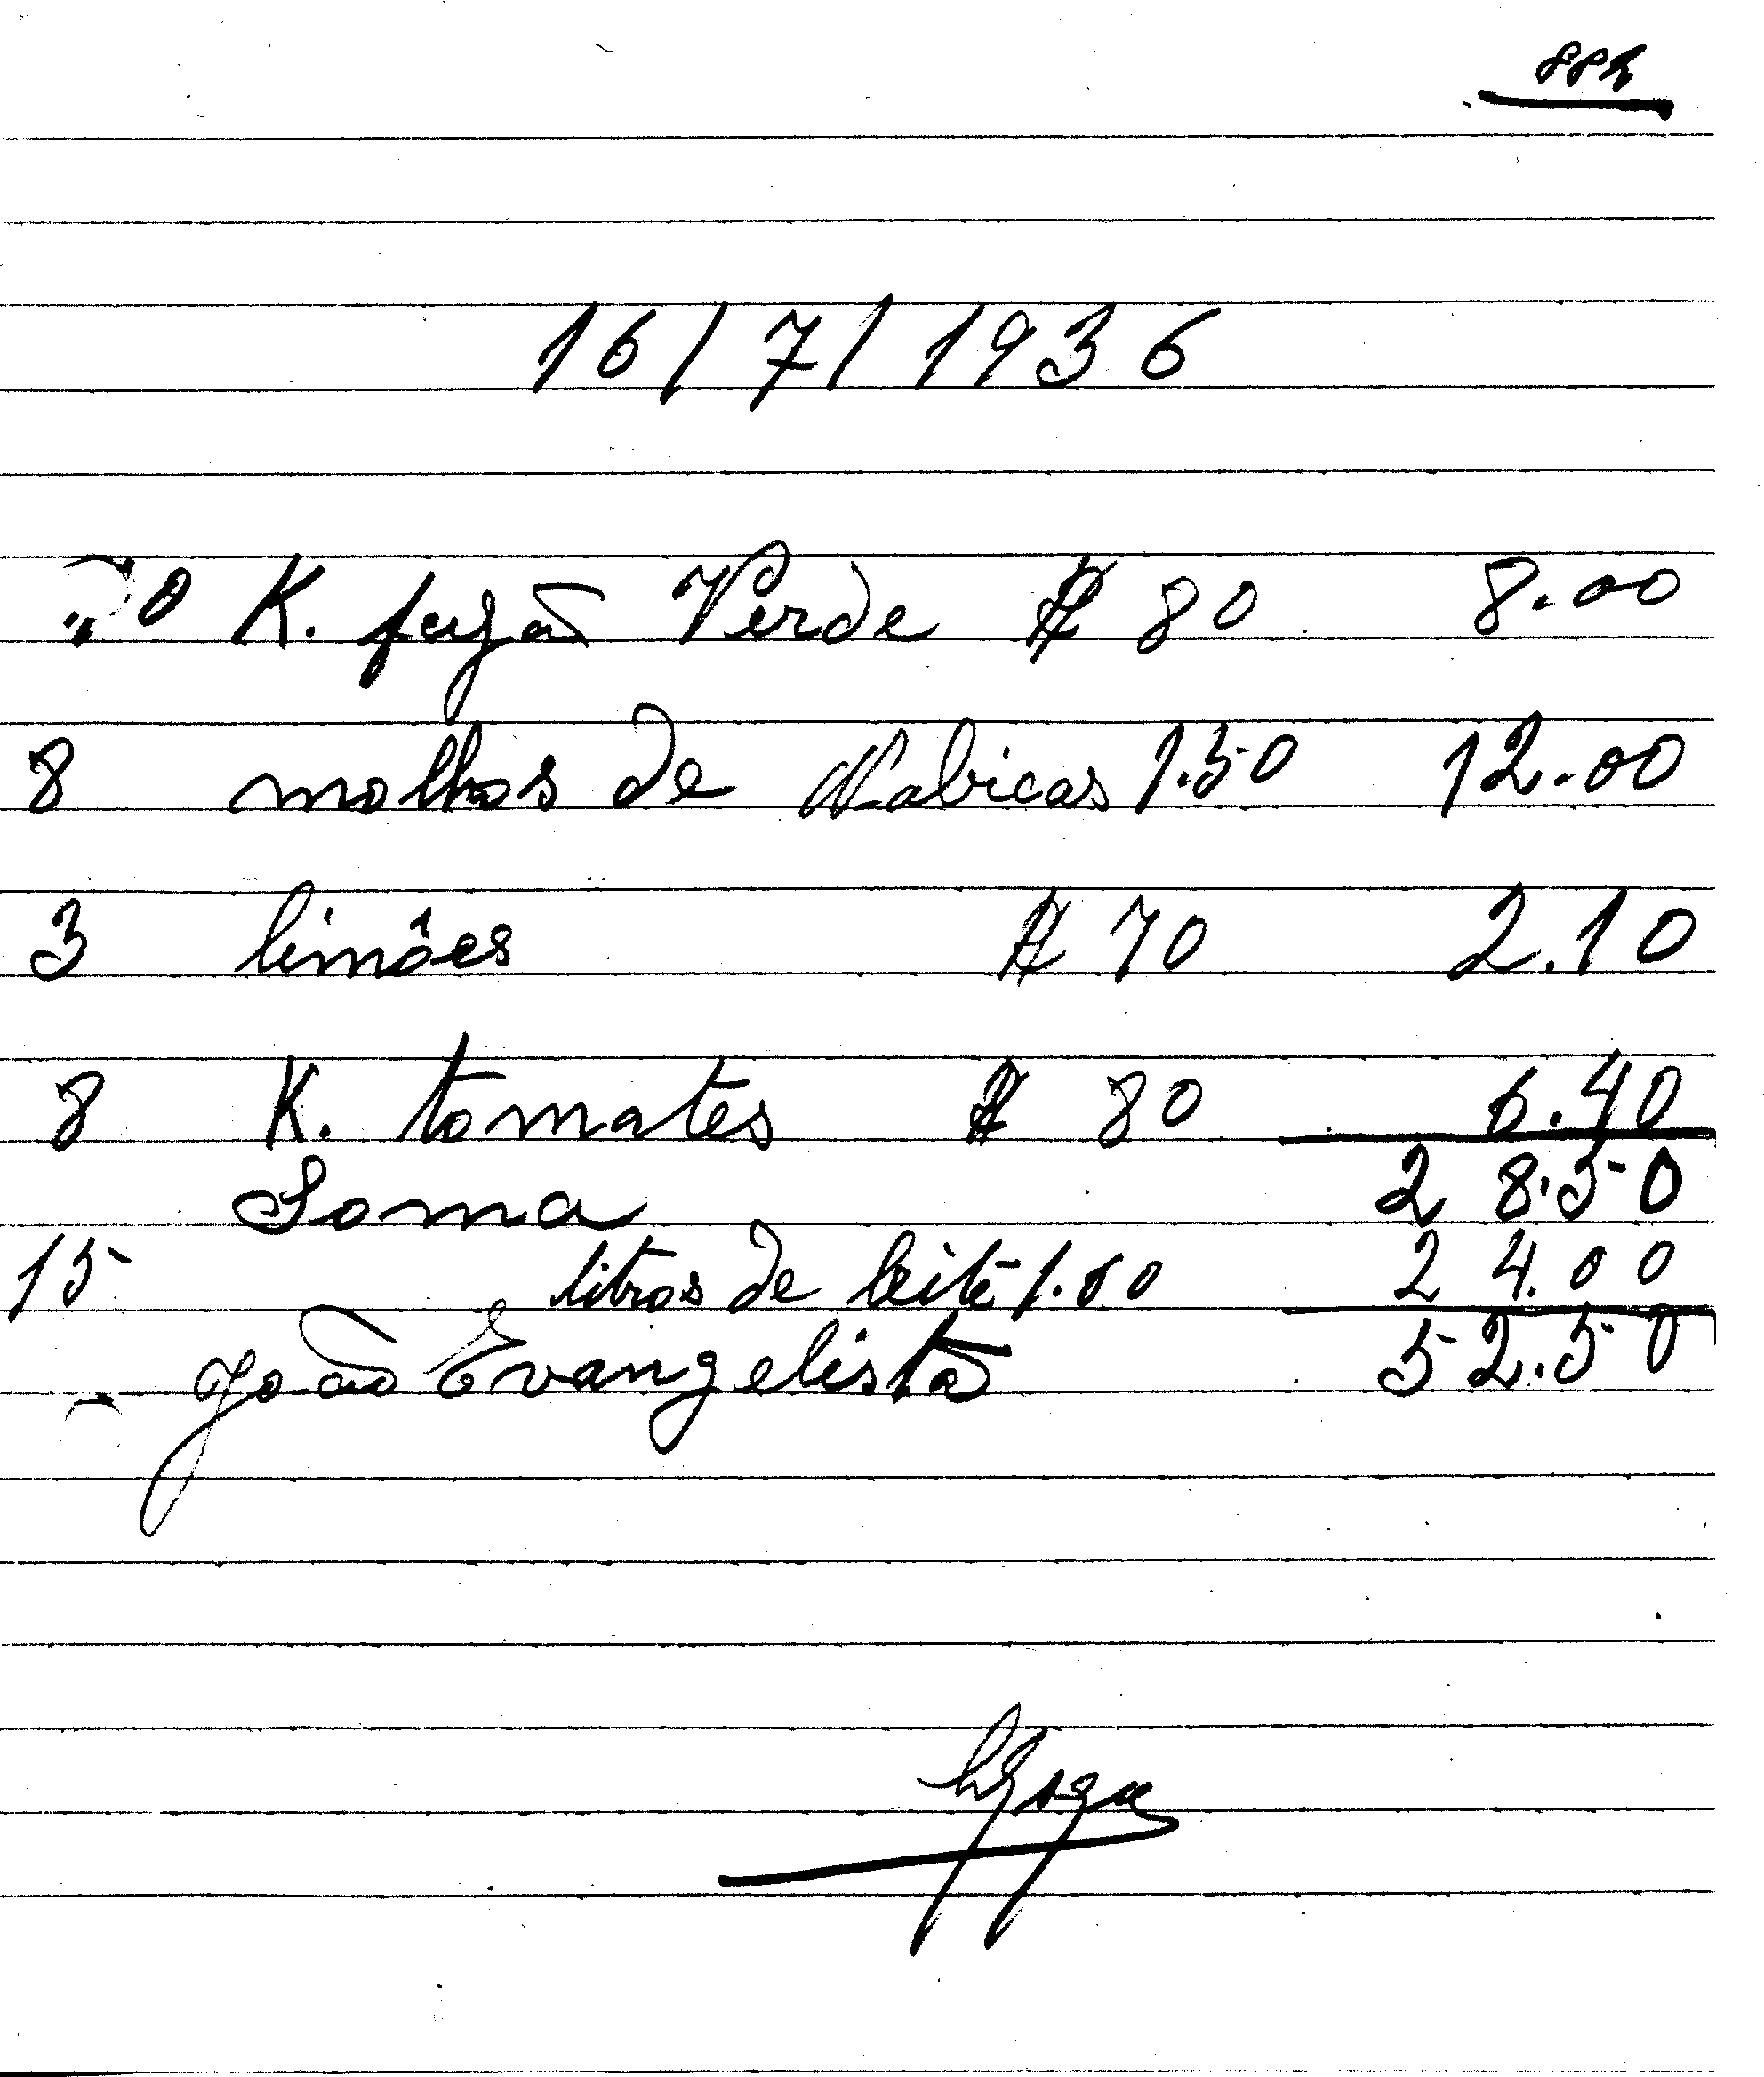 16/7/1936
10 K. feijão Verde $ 80 8.00
8 molhos de Nabiças 1.50 12.00
3 limões $ 70 2.10
8 K. tomates $ 80 6.40
Soma 28.50
15 litros de leite 1.60 24.00
João Evangelista 52.50